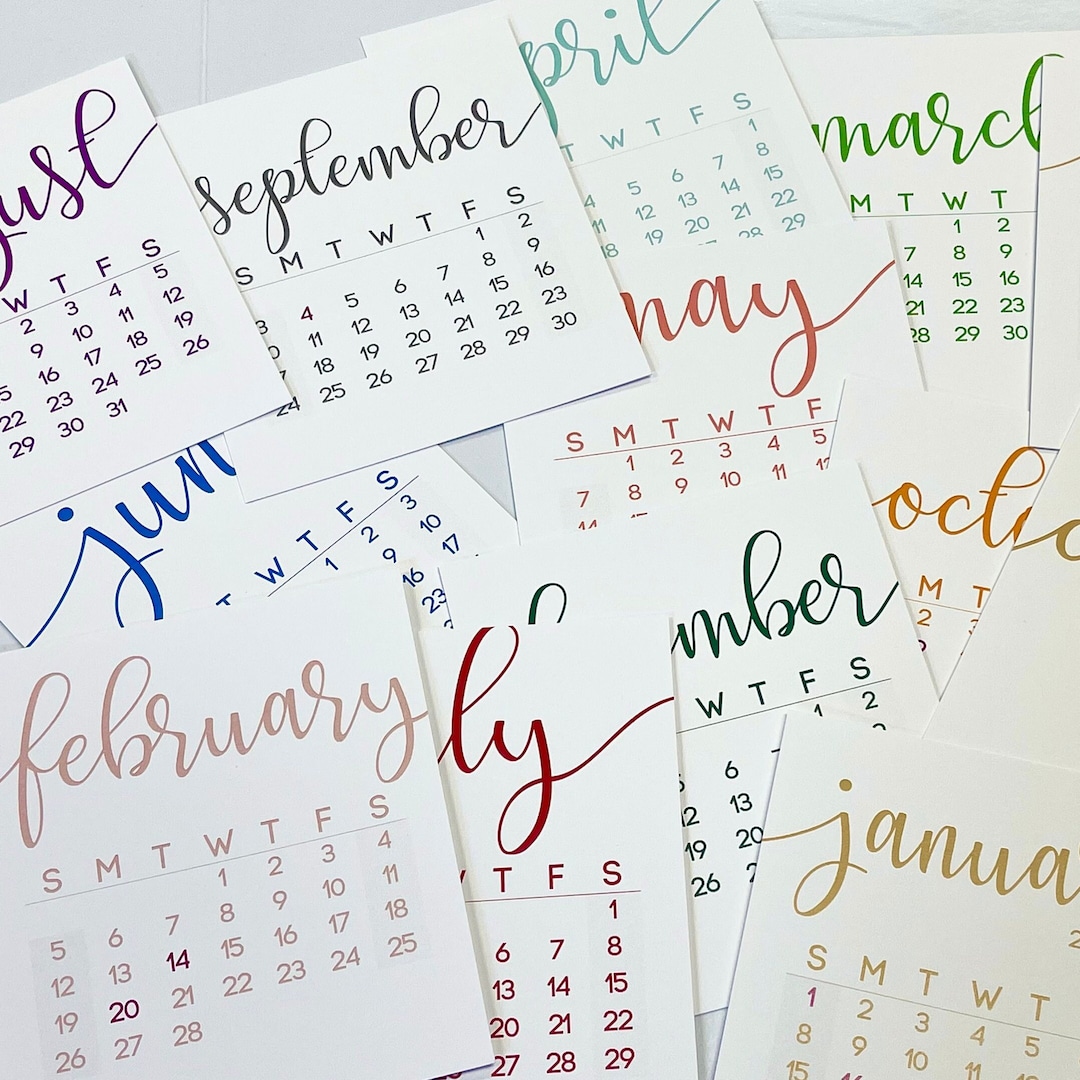 ust
W T F S
2 3 4 5
9 10 11 12
16 17 18 19
22 23 24 25 26
29 30 31
september
S M T W T F S
1 2
3 4 5 6 7 8 9
11 12 13 14 15 16
18 19 20 21 22 23
24 25 26 27 28 29 30
pril
T W T F S
1
4 5 6 7 8
11 12 13 14 15
18 19 20 21 22
28 29
march
M T W T
1 2
7 8 9
14 15 16
21 22 23
28 29 30
may
S M T W T F
1 2 3 4 5
7 8 9 10 11 12
jun
T W T F S
1 2 3
9 10
16 17
23
octo
M T
2 3
mber
W T F S
1 2
5 6
12 13
19 20
26
february
S M T W T F S
1 2 3 4
5 6 7 8 9 10 11
12 13 14 15 16 17 18
19 20 21 22 23 24 25
26 27 28
ly
T F S
1
6 7 8
13 14 15
20 21 22
27 28 29
janua
S M T W T
1 2 3 4 5
8 9 10 11
15 16